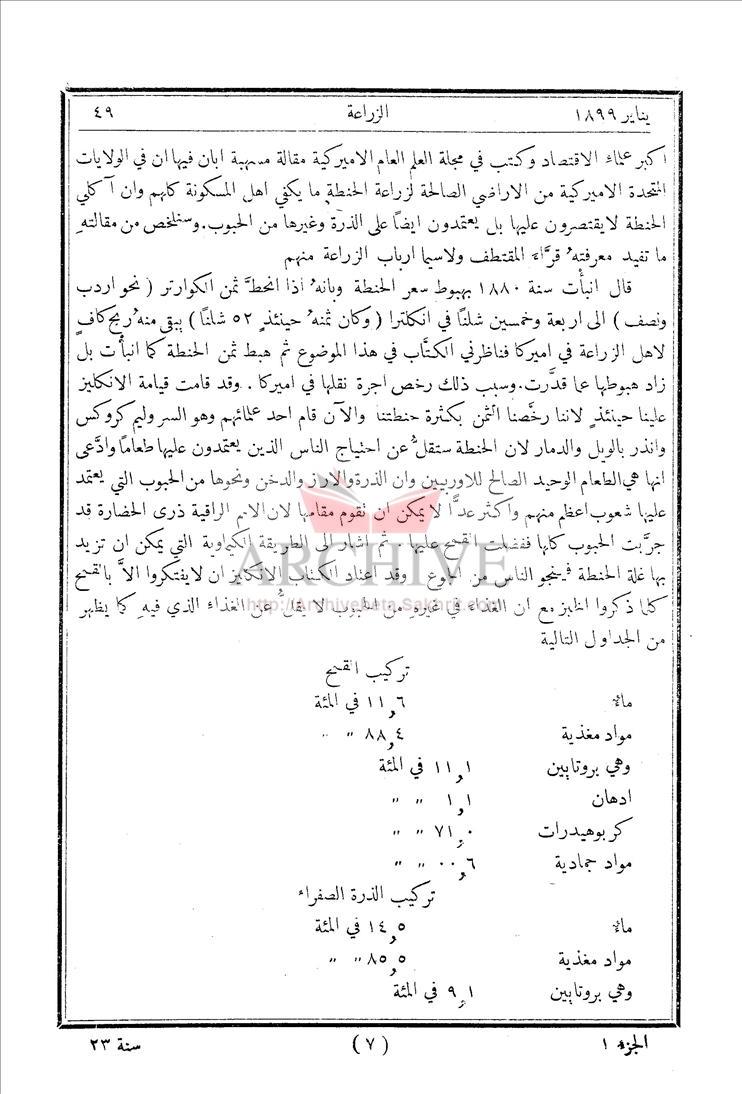 يناير ١٨٩٩ الزراعة ٤٩
اكبر علماء الاقتصاد وكتب في مجلة العلم العام الاميركية مقالة مسهبة ابان فيها ان في الولايات
المتحدة الاميركية من الاراضي الصالحة لزراعة الحنطة ما يكفي اهل المسكونة كلهم وان آكلي
الحنطة لا يقتصرون عليها بل يعتمدون ايضاً على الذرة وغيرها من الحبوب. وسنلخص من مقالتهِ
ما تفيد معرفتهُ قرَّاءَ المقتطف ولاسيما ارباب الزراعة منهم
قال انبأْت سنة ١٨٨٠ بهبوط سعر الحنطة وبانهُ اذا انحطَّ ثمن الكوارتر ( نحو اردب
ونصف ) الى اربعة وخمسين شلناً في انكلترا ( وكان ثمنهُ حينئذٍ ٥٢ شلناً ) يبقى منهُ ربح كافٍ
لاهل الزراعة في اميركا فناظرني الكتَّاب في هذا الموضوع ثم هبط ثمن الحنطة كما انبأْت بل
زاد هبوطها عما قدَّرت. وسبب ذلك رخص اجرة نقلها في اميركا . وقد قامت قيامة الانكليز
علينا حينئذٍ لاننا رخَّصنا الثمن بكثرة حنطتنا والآن قام احد علمائهم وهو السر وليم كروكس
وانذر بالويل والدمار لان الحنطة ستقلُّ عن احتياج الناس الذين يعتمدون عليها طعاماً وادَّعى
انها هي الطعام الوحيد الصالح للاوربيين وان الذرة والارز والدخن ونحوها من الحبوب التي يعتمد
عليها شعوب اعظم منهم واكثر عدًّا لا يمكن ان تقوم مقامها لان الامم الراقية ذرى الحضارة قد
جرَّبت الحبوب كلها ففضلت القمح عليها . ثم اشار الى الطريقة الكيماوية التي يمكن ان تزيد
بها غلة الحنطة فينجو الناس من الجوع . وقد اعتاد الكتاب الانكليز ان لا يفتكروا الاَّ بالقمح
كلما ذكروا الخبز مع ان الغذاء في غيره من الحبوب لا يقلُّ عن الغذاء الذي فيهِ كما يظهر
من الجداول التالية
تركيب القمح
ماء ١١٫٦ في المئة
مواد مغذية ٨٨٫٤ " "
وهي بروتايين ١١٫١ في المئة
ادهان ١٫١ " "
كربوهيدرات ٧١٫٠ " "
مواد جمادية ٠٠٫٦ " "
تركيب الذرة الصفراء
ماء ١٤٫٥ في المئة
مواد مغذية ٨٥٫٥ " "
وهي بروتايين ٩٫١ في المئة
الجزء ١ (٧) سنة ٢٣
ARCHIVE
http://Archivebeta.Sakhrit.com